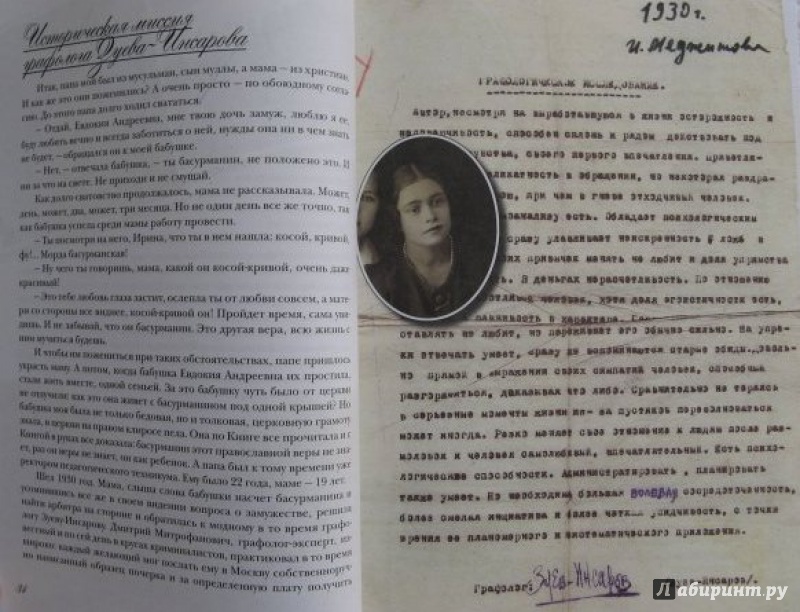 Историческая миссия
графолога Зуева-Инсарова
Итак, папа мой был из мусульман, сын муллы, а мама — из христиан.
И как же это они поженились? А очень просто — по обоюдному согла-
сию. До этого папа долго ходил свататься.
— Отдай, Евдокия Андреевна, мне твою дочь замуж, люблю я ее,
буду любить вечно и всегда заботиться о ней, нужды она ни в чем знать
не будет, — обращался он к моей бабушке.
— Нет, — отвечала бабушка, — ты басурманин, не положено это. И
ни за что на свете. Не приходи и не смущай.
Как долго сватовство продолжалось, мама не рассказывала. Может,
день, может, два, может, три месяца. Но не один день все же точно, так
как бабушка успела среди мамы работу провести.
— Ты посмотри на него, Ирина, что ты в нем нашла: косой, кривой,
фу!.. Морда басурманская!
— Ну чего ты говоришь, мама, какой он косой-кривой, очень даже
красивый!
— Это тебе любовь глаза застит, ослепла ты от любви совсем, а мате-
ри со стороны все виднее, косой-кривой он! Пройдет время, сама уви-
дишь. И не забывай, что он басурманин. Это другая вера, всю жизнь с
ним мучиться будешь.
И чтобы им пожениться при таких обстоятельствах, папе пришлось
украсть маму. А потом, когда бабушка Евдокия Андреевна их простила,
стали жить вместе, одной семьей. За это бабушку чуть было от церкви
не отлучили: как это она живет с басурманином под одной крышей? Но
бабушка моя была не только бедовая, но и толковая, церковную грамоту
знала, в церкви на правом клиросе пела. Она по Книге все прочитала и с
Книгой в руках все доказала: басурманин этот православной веры не зна-
ет, раз он веры не знает, он как ребенок. А папа был к тому времени уже
ректором педагогического техникума. Ему было 22 года, маме — 19 лет.
Шел 1930 год. Мама, слыша слова бабушки насчет басурманина и
усомнившись все же в своем видении вопроса о замужестве, решила
найти арбитра на стороне и обратилась к модному в то время графо-
логу Зуеву-Инсарову. Дмитрий Митрофанович, графолог-эксперт, из-
вестный и по сей день в кругах криминалистов, практиковал в то время
широко: каждый желающий мог послать ему в Москву собственноруч-
но написанный образец почерка и за определенную плату получить
1930 г.
И. Меджитова
ГРАФОЛОГИЧЕСКОЕ ИССЛЕДОВАНИЕ.
Автор, несмотря на выработавшуюся в жизни осторожность и
недоверчивость, способен сплошь и рядом действовать под
чувства, своего первого впечатления. Приветли-
деликатность в обращении, но некоторая раздра-
при чем в гневе отходчивый человек.
есть. Обладает психологическим
сразу улавливает неискренность и ложь в
привычек менять не любит и доля упрямства
В деньгах нерасчетливость. По отношению
человек, хотя доля эгоистичности есть,
в характере.
оставлять не любит, но переживает его обычно сильно. На упре-
ки отвечать умеет, сразу же вспоминаются старые обиды. Доволь-
но прямой в выражении своих симпатий человек, способный
разгорячиться, доказывая что либо. Сравнительно не теряясь
в серьезные моменты жизни из-за пустяков переволноваться
может иногда. Резко меняет свое отношение к людям после раз-
молвки и человек самолюбивый, впечатлительный. Есть психо-
логические способности. Администрировать, планировать
также умеет. Но необходима большая волевая сосредоточенность,
более смелая инициатива и более четкая усидчивость, с точки
зрения ее планомерного и систематического приложения.
Графолог: Зуев-Инсаров
/Зуев-Инсаров/.
Лабиринт.ру